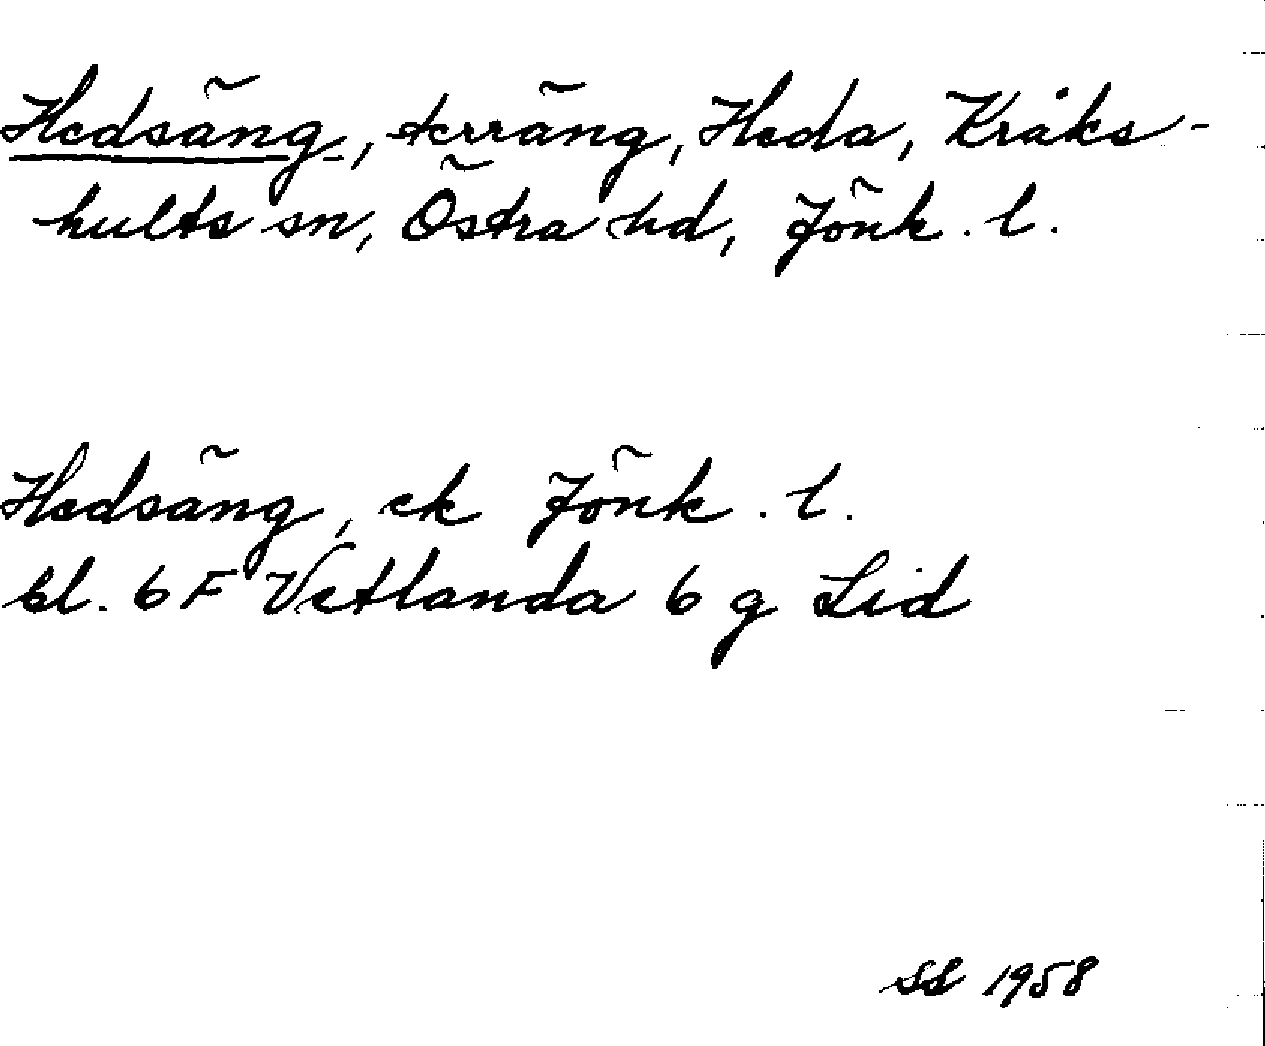 Hedsäng, terräng, Heda, Kråks-
hults sn, Östra hd, Jönk. l.
Hedsäng, ek Jönk. l.
bl. 6 F Vetlanda 6 g Lid
SS 1958